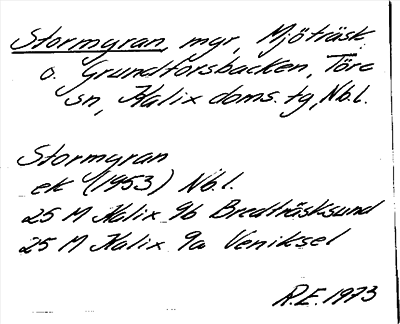 Stormyran, myr, Mjöträsk
o. Grundforsbacken, Töre
sn, Kalix doms. tg, Nb.l.
Stormyran
ek (1953) Nb.l.
25 M Kalix 9b Bredträsksund
25 M Kalix 9a Veniksel
R.E. 1973